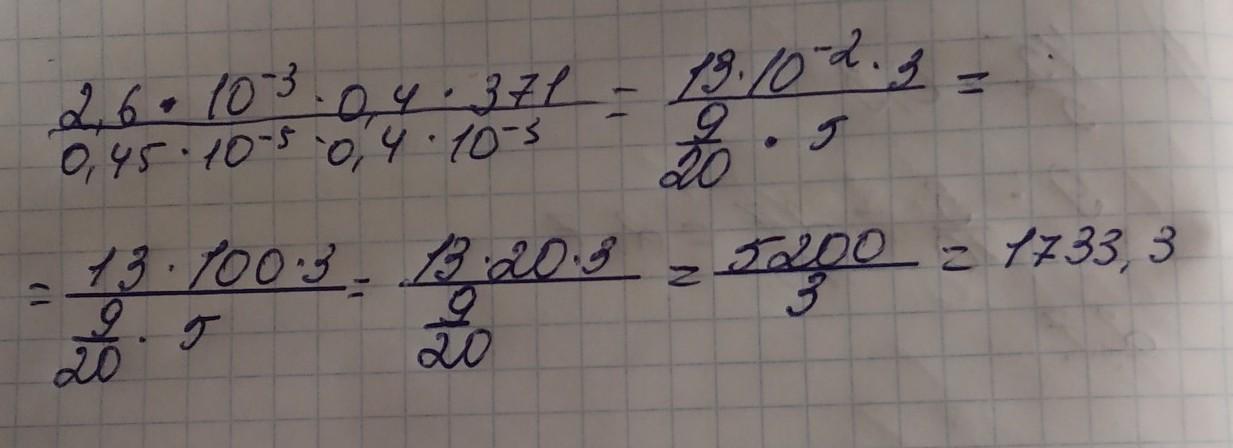 (2,6 · 10^-3 · 0,4 · 371)/(0,45 · 10^-5 · 0,4 · 10^-3) = (13 · 10^-2 · 3)/(9/20 · 5) =
= (13 · 100 · 3)/(9/20 · 5) = (13 · 20 · 3)/(9/20) = 5200/3 = 1733,3